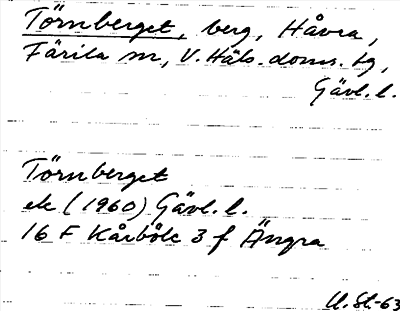 Törnberget, berg, Håvra,
Färila sn, V. Häls. doms. tg,
Gävl. l.
Törnberget
ek (1960) Gävl. l.
16 F Kårböle 3 f Ängra
U. St.-63